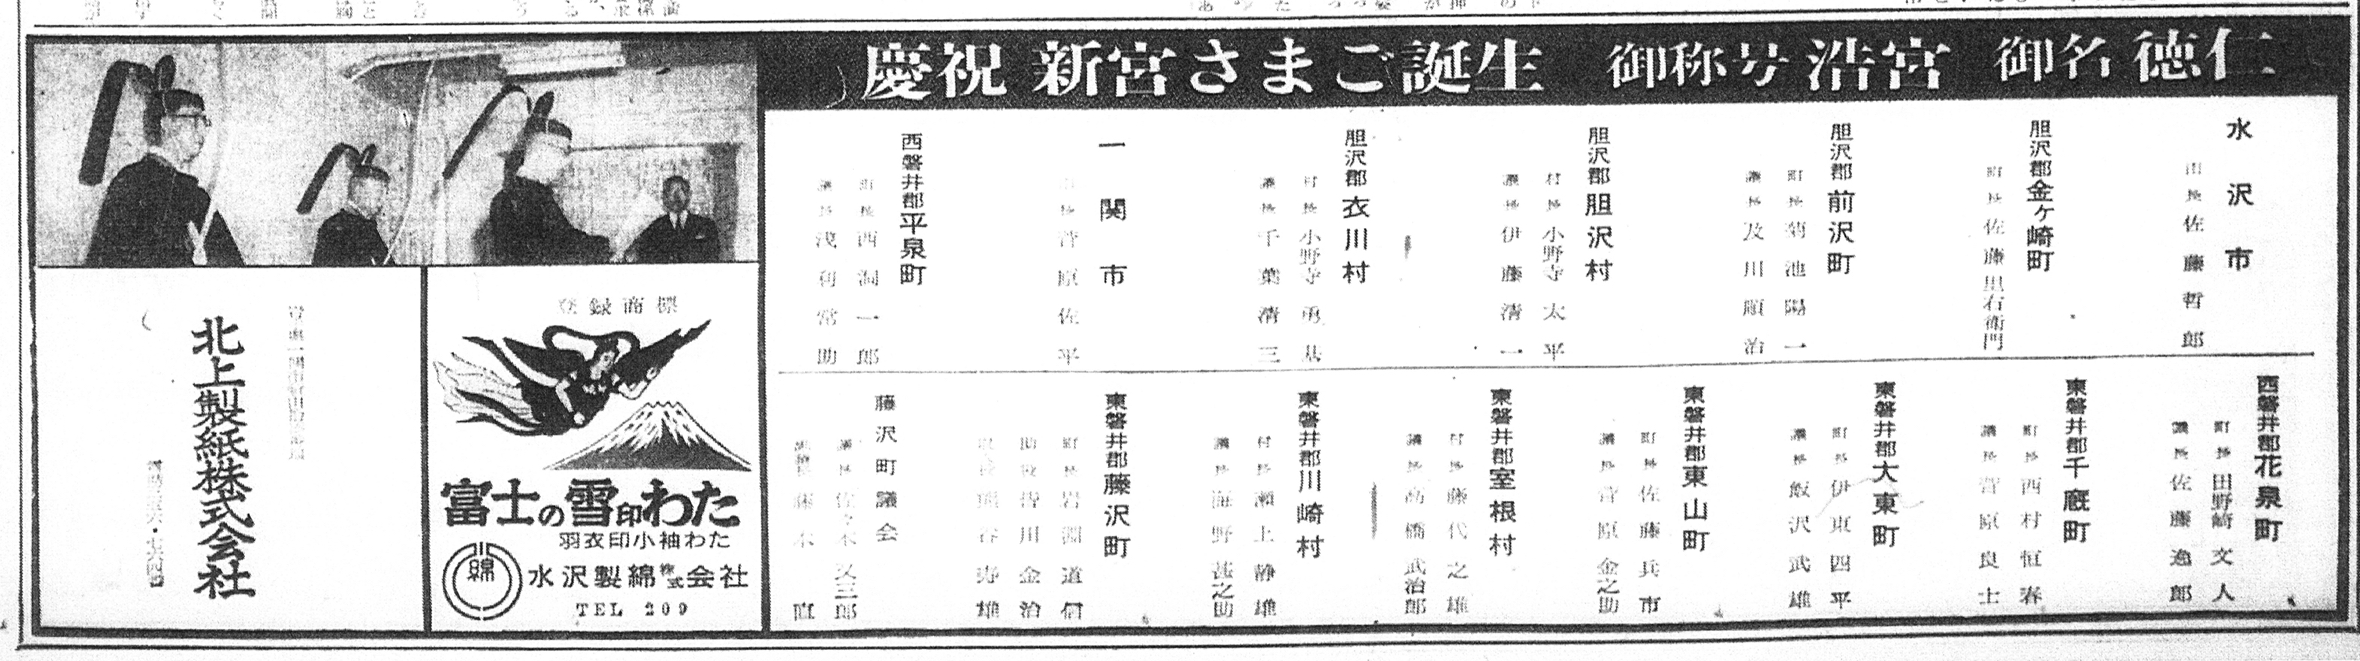 慶祝 新宮さまご誕生 御称号 浩宮 御名 徳仁
水沢市
市長 佐藤哲郎
胆沢郡金ヶ崎町
町長 佐藤里右衛門
胆沢郡前沢町
町長 菊池陽一
議長 及川順治
胆沢郡胆沢村
村長 小野寺太平
議長 伊藤清一
胆沢郡衣川村
村長 小野寺勇基
議長 千葉清三
一関市
市長 菅原佐平
西磐井郡平泉町
町長 西洞一郎
議長 浅利常助
西磐井郡花泉町
町長 田野崎文人
議長 佐藤逸郎
東磐井郡千厩町
町長 西村恒春
議長 菅原良士
東磐井郡大東町
町長 伊東四平
議長 飯沢武雄
東磐井郡東山町
町長 佐藤兵市
議長 菅原金之助
東磐井郡室根村
村長 藤代之雄
議長 高橋武治郎
東磐井郡川崎村
村長 瀬上静雄
議長 海野甚之助
東磐井郡藤沢町
町長 岩淵道信
助役 皆川金治
収入役 熊谷寿雄
藤沢町議会
議長 佐々木又三郎
副議長
登録商標
富士の雪印わた
羽衣印小袖わた
綿
水沢製綿株式会社
TEL 209
北上製紙株式会社